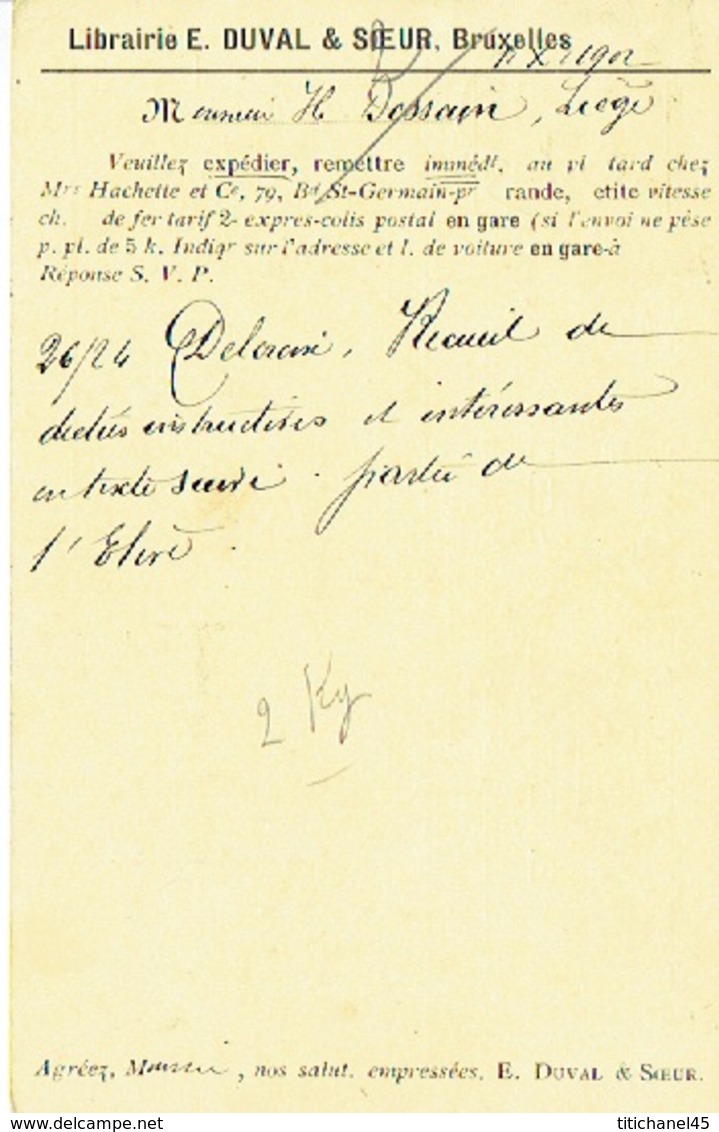 Librairie E. DUVAL & SŒUR, Bruxelles
X 1902
Monsieur H Dessain, Liège
Veuillez expédier, remettre immédt. au pl tard chez
Mrs Hachette et Ce, 79, Bd St-Germain-pr rande, etite vitesse
ch. de fer tarif 2- expres-colis postal en gare (si l'envoi ne pèse
p. pl. de 5 k. Indiqr sur l'adresse et l. de voiture en gare-à
Réponse S. V. P.
26/24 Recueil de
dictées instructives et intéressantes
en texte suivi. partie de
l'Elève.
2 Kg
Agréez, Monsieur, nos salut. empressées. E. DUVAL & SŒUR.
titichanel45